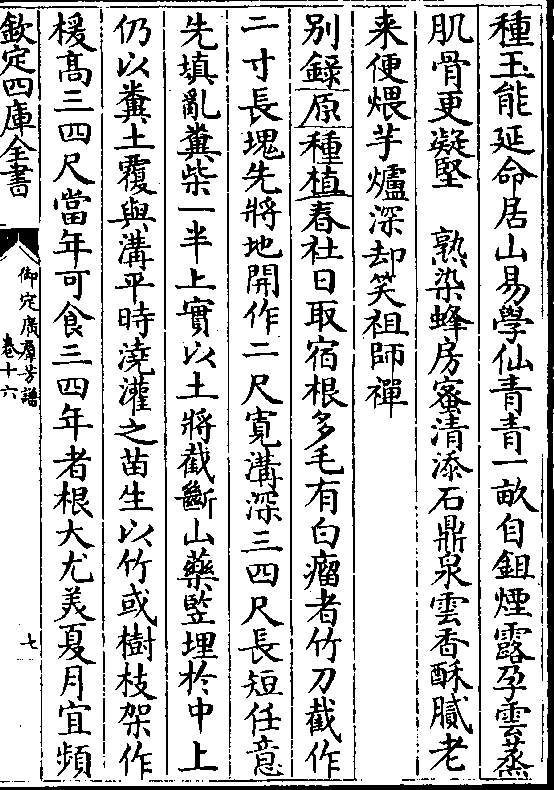 種玉能延命居山易學仙青青一畝自鉏煙露孕雲蒸
肌骨更凝堅　熟染蜂房蜜清添石鼎泉雲香酥膩老
来便煨芋爐深却笑祖師禪
别録原種植春社日取宿根多毛有白瘤者竹刀截作
二寸長塊先將地開作二尺寛溝深三四尺長短任意
先填亂糞柴一半上實以土將截斷山藥竪埋於中上
仍以糞土覆與溝平時澆灌之苗生以竹或樹枝架作
楥髙三四尺當年可食三四年者根大尤美夏月宜頻
欽定四庫全書
御定廣羣芳譜
卷十六
七